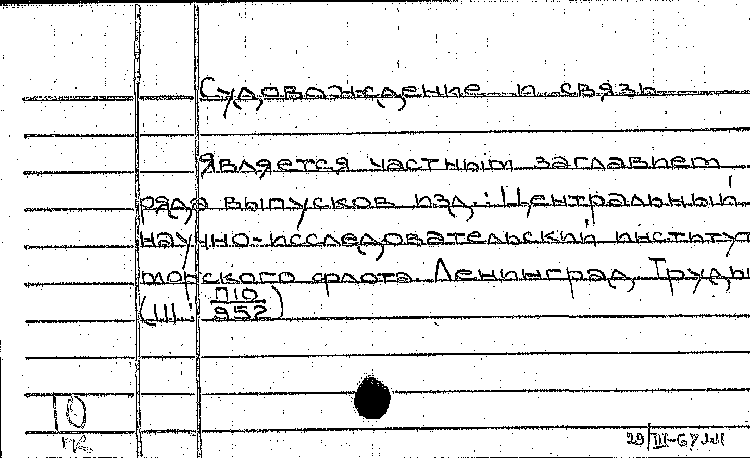 Судовождение и связь
Является частным заглавием
ряда выпусков изд.: Центральный
научно-исследовательский институт
морского флота. Ленинград. Труды
(III П10/952)
10
29/III-67